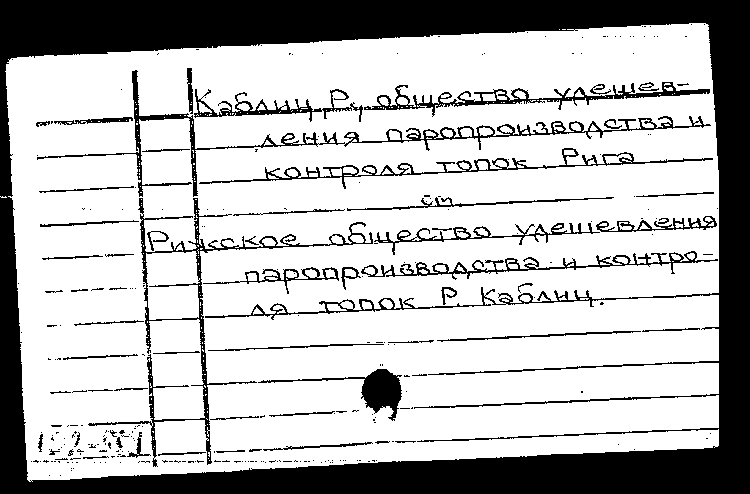 Каблиц, Р., общество удешев-
ления паропроизводства и
контроля топок. Рига
см.
Рижское общество удешевления
паропроизводства и контро-
ля топок Р. Каблиц.